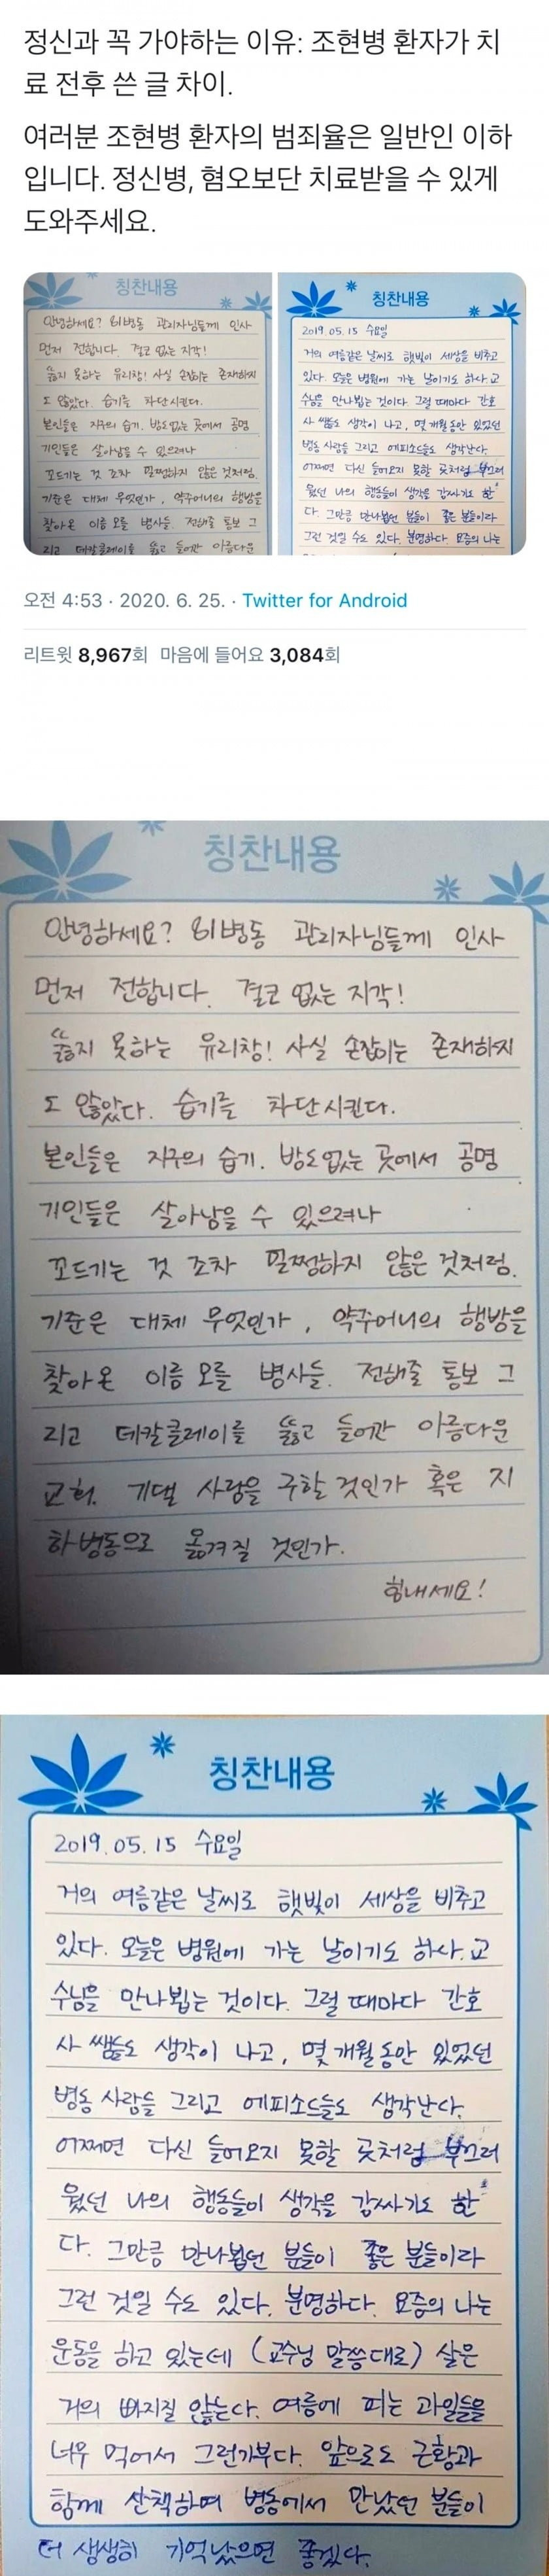 정신과 꼭 가야하는 이유: 조현병 환자가 치
료 전후 쓴 글 차이.
여러분 조현병 환자의 범죄율은 일반인 이하
입니다. 정신병, 혐오보단 치료받을 수 있게
도와주세요.
칭찬내용
안녕하세요? 81병동 관리자님들께 인사
먼저 전합니다. 결코 없는 지각!
뚫지 못하는 유리창! 사실 손잡이는 존재하지
도 않았다. 습기를 차단시킨다.
본인들은 지구의 습기. 방도없는 곳에서 공명
기인들은 살아남을 수 있으려나
꼬드기는 것 조차 멀쩡하지 않은 것처럼.
기준은 대체 무엇인가, 약주머니의 행방을
찾아온 이름 모를 병사들. 전해줄 통보 그
리고 데칼클레이를 뚫고 들어간 아름다운
칭찬내용
2019.05.15 수요일
거의 여름같은 날씨로 햇빛이 세상을 비추고
있다. 오늘은 병원에 가는 날이기도 하사.교
수님을 만나뵙는 것이다. 그럴 때마다 간호
사 쌤들도 생각이 나고, 몇 개월동안 있었던
병동 사람들 그리고 에피소드들도 생각난다.
어쩌면 다신 들어오지 못할 곳처럼 부끄러
웠던 나의 행동들이 생각을 감싸기도 한
다. 그만큼 만나뵙던 분들이 좋은 분들이라
그런 것일 수도 있다. 분명하다. 요즘의 나는
오전 4:53 · 2020. 6. 25. · Twitter for Android
리트윗 8,967회 마음에 들어요 3,084회
칭찬내용
안녕하세요? 81병동 관리자님들께 인사
먼저 전합니다. 결코 없는 지각!
뚫지 못하는 유리창! 사실 손잡이는 존재하지
도 않았다. 습기를 차단시킨다.
본인들은 지구의 습기. 방도없는 곳에서 공명
기인들은 살아남을 수 있으려나
꼬드기는 것 조차 멀쩡하지 않은 것처럼.
기준은 대체 무엇인가, 약주머니의 행방을
찾아온 이름 모를 병사들. 전해줄 통보 그
리고 데칼클레이를 뚫고 들어간 아름다운
교회. 기댈 사람을 구할 것인가 혹은 지
하병동으로 옮겨질 것인가.
힘내세요!
칭찬내용
2019.05.15 수요일
거의 여름같은 날씨로 햇빛이 세상을 비추고
있다. 오늘은 병원에 가는 날이기도 하사.교
수님을 만나뵙는 것이다. 그럴 때마다 간호
사 쌤들도 생각이 나고, 몇 개월동안 있었던
병동 사람들 그리고 에피소드들도 생각난다.
어쩌면 다신 들어오지 못할 곳처럼 부끄러
웠던 나의 행동들이 생각을 감싸기도 한
다. 그만큼 만나뵙던 분들이 좋은 분들이라
그런 것일 수도 있다. 분명하다. 요즘의 나는
운동을 하고 있는데 (교수님 말씀대로) 살은
거의 빠지질 않는다. 여름에 피는 과일들을
너무 먹어서 그런가부다. 앞으로도 근황과
함께 산책하며 병동에서 만났던 분들이
더 생생히 기억났으면 좋겠다.